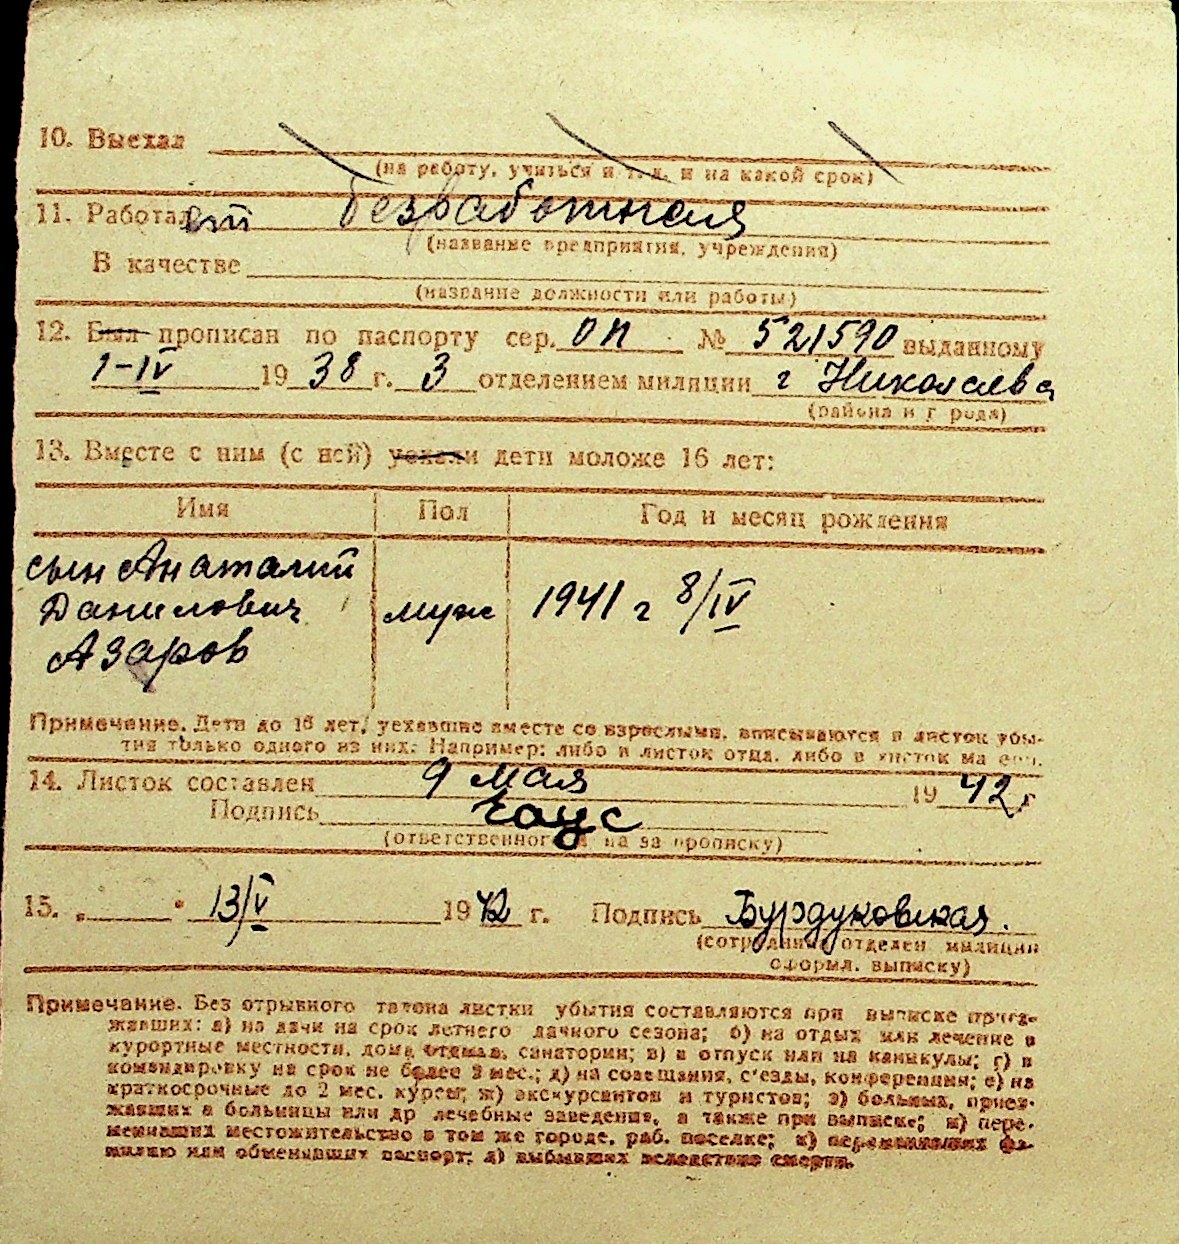 10. Выехал
(на работу, учиться и т. д. и на какой срок)
11. Работает безработная
(название предприятия, учреждения)
В качестве
(название должности или работы)
12. Был прописан по паспорту сер. ОП № 521590 выданному
1-IV 1938 г. 3 отделением милиции г Николаева
(района и города)
13. Вместе с ним (с ней) уехали дети моложе 16 лет:
Имя Пол Год и месяц рождения
сын Анаталий
Данилович муж 1941 г 8/IV
Азаров
Примечание. Дети до 16 лет, уехавшие вместе со взрослыми, вписываются в листок убы-
тия только одного из них. Например: либо в листок отца, либо в листок матери.
14. Листок составлен 9 мая 1942 г
Подпись Чаус
(ответственного за прописку)
15. „ “ 13/V 1942 г. Подпись Бурдуковская.
(сотрудника отделен милиции
оформл. выписку)
Примечание. Без отрывного талона листки убытия составляются при выписке приез-
жавших: а) на дачи на срок летнего дачного сезона; б) на отдых или лечение в
курортные местности, дома отдыха, санатории; в) в отпуск или на каникулы; г) в
командировку на срок не более 2 мес.; д) на совещания, с'езды, конференции; е) на
краткосрочные до 2 мес. курсы; ж) экскурсантов и туристов; з) больных, приез-
жавших в больницы или др лечебные заведения, а также при выписке; и) пере-
менивших местожительство в том же городе, раб. поселке; к) переменивших фа-
милию или обменявших паспорт; л) выбывших вследствие смерти.